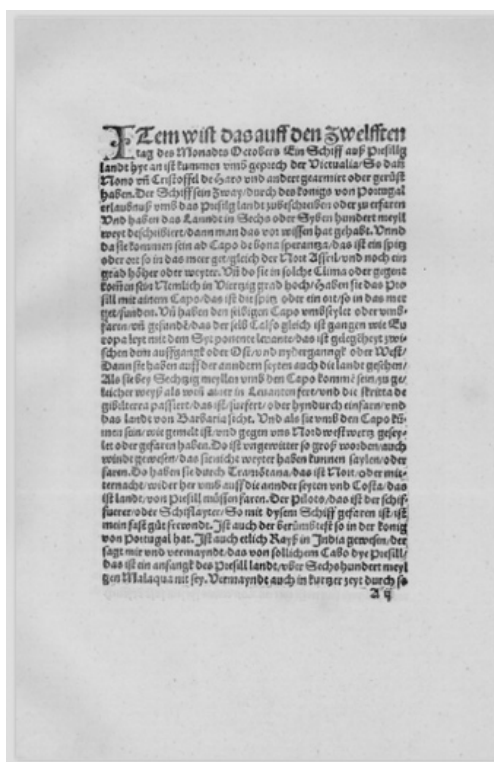 ITem wist das auff den Zwelfften
tag des Monadts Octobers Ein Schiff auß Presillg
landt hye an ist kummen vmb geprech der Victualia/ So dañ
Nono vñ Cristoffel de Haro vnd ander gearmirt oder gerüst
haben. Der Schiff sein Zway/ durch des konigs von Portugal
erlaubnuß vmb das Presilg landt zubeschreiben oder zu erfaren
Vnd haben das Lanndt in Sechs oder Syben hundert meyll
weyt deschribiert/ dann man das vor wissen hat gehabt. Vnnd
da sie kommen sein ad Capo de bona speranza/ das ist ein spitz
oder ort so in das meer get/ gleich der Nort Assril/ vnd noch ein
grad höher oder weyter. Vñ do sie in solche Clima oder gegent
kom̃en sein Nemlich in Viertzig grad hoch/ Haben sie das Pre
sill mit ainem Capo/ das ist die spitz oder ein ort/ so in das mer
get/ funden. Vñ haben den selbigen Capo vmbseylet oder vmb⸗
faren/ vñ gefundẽ/ das der selb Calfo gleich ist gangen wie Eu
ropa leyt mit dem Syt ponente leuante/ das ist gelegẽheyt zwi⸗
schen dem auffgangk oder Ost/ vnd nydergangk oder West/
Dann sie haben auff der anndern seyten auch die landt gesehen/
Als sie bey Sechtzig meyllen vmb den Capo kommẽ sein/ zu ge⸗
leicher weyß als wen ainer in Leuanten fert/ vnd die skritta de
gibilterra passiert/ das ist/ furfert/ oder hyndurch einfarn/ vnd
das landt von Barbaria sicht. Vnd als sie vmb den Capo kũ⸗
men sein/ wie gemelt ist/ vnd gegen vns Nordwestwertz gesey⸗
let oder gefaren haben. Do ist vngewitter so groß worden/ auch
windt gewesen/ das sie nicht weyter haben kunnen saylen/ oder
faren. Do haben sie durch Tramõtana/ das ist Nort/ oder mit⸗
ternacht/ wider her vmb auff die annder seyten vnd Costa/ das
ist landt/ von Presill müssen faren. Der Piloto/ das ist der schif⸗
fuerer/ oder Schiflayter/ So mit dysem Schiff gefaren ist/ ist
mein fast gůt freundt. Ist auch der berümbtest so in der konig
von Portugal hat. Ist auch etlich Rayß in India gewesen/ der
sagt mir vnd vermayndt/ das von sollichem Cabo dye Presill/
das ist ein anfangk des Presill landt/ vber Sechs hundert meyl
gen Malaqua nit sey. Vermayndt auch in kurtzer zeyt durch so
A ij